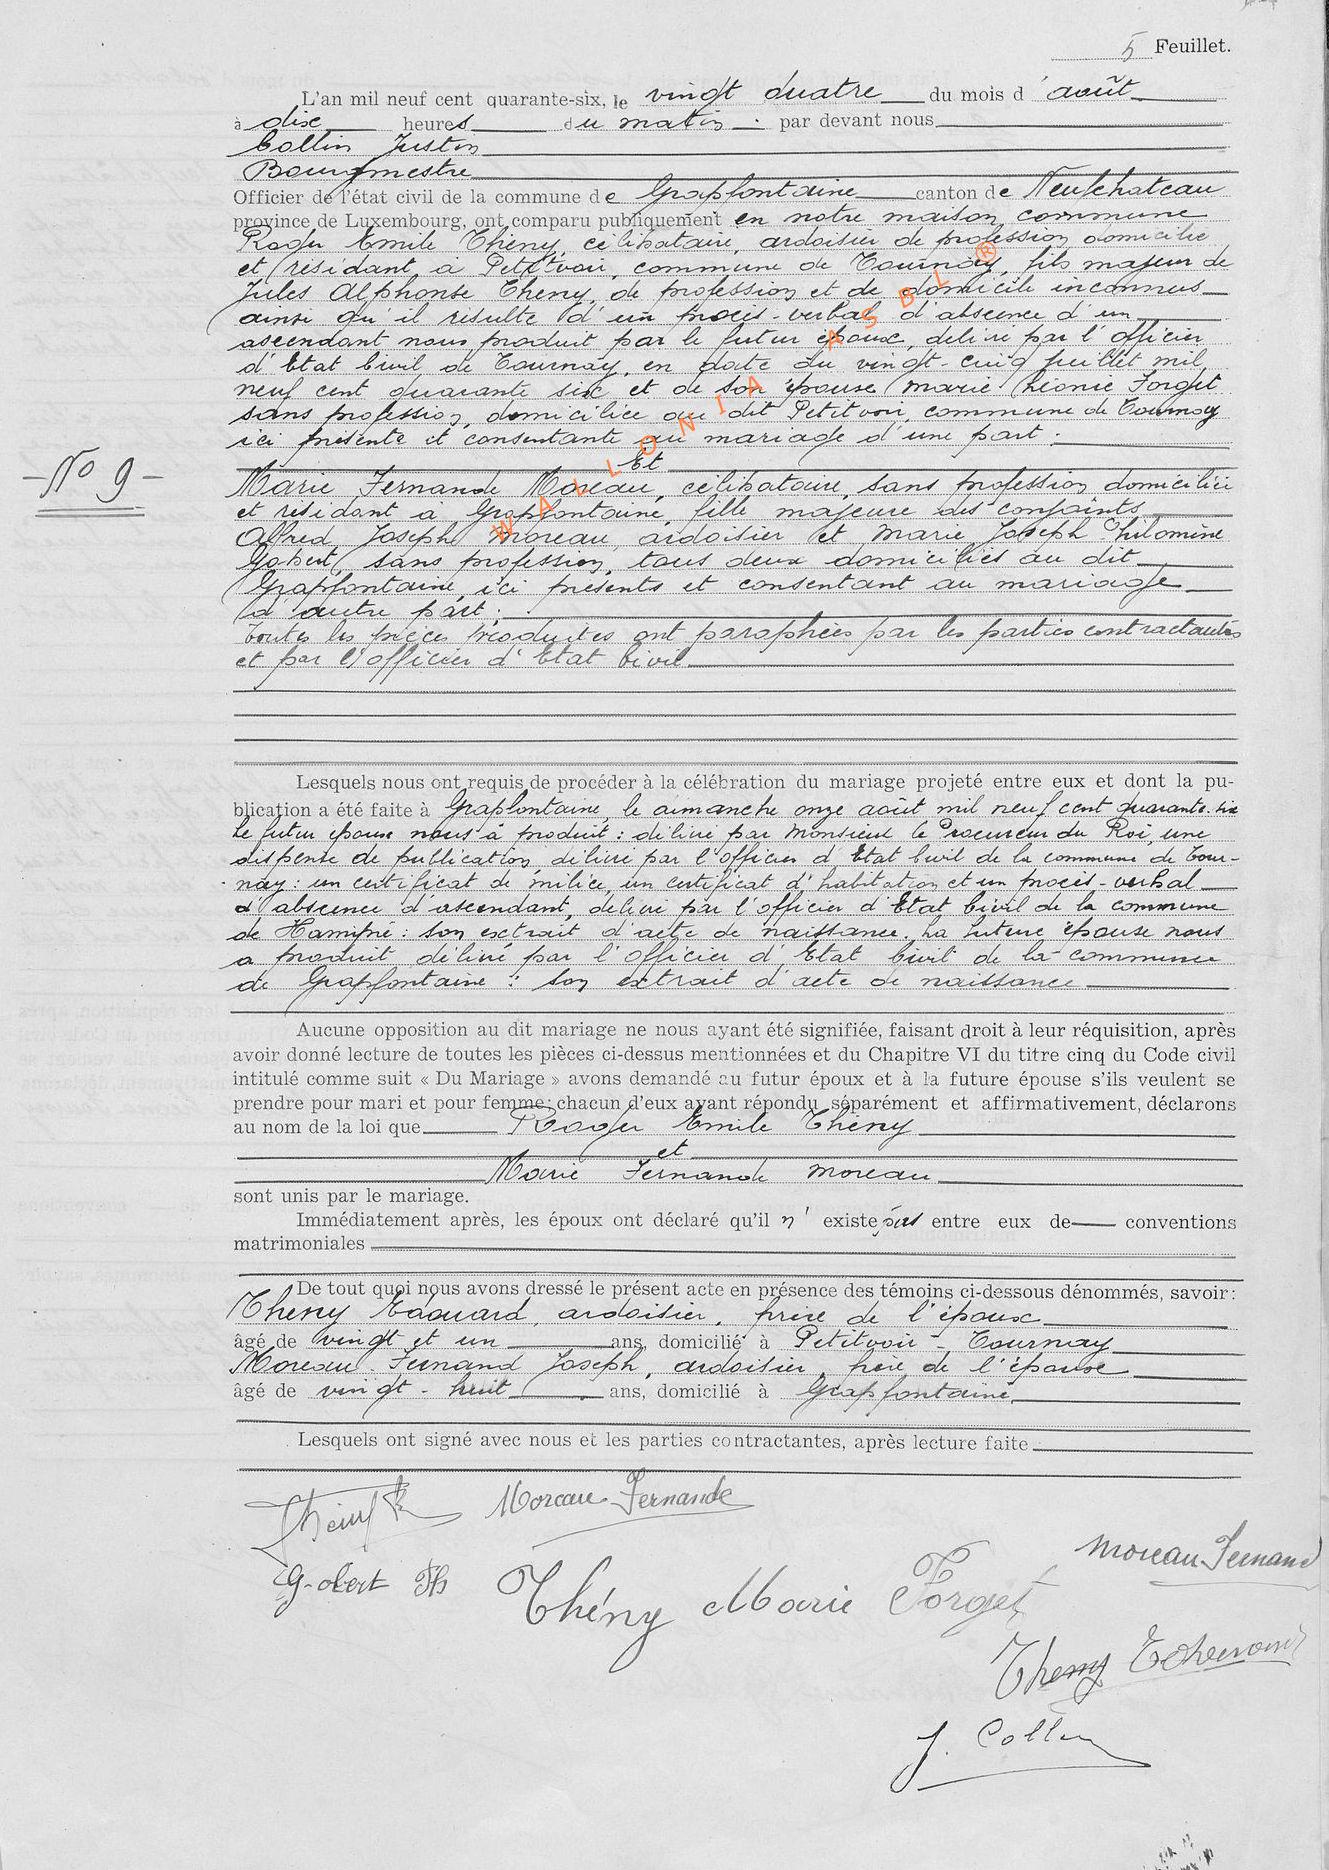 5 Feuillet.
L'an mil neuf cent quarante-six, le vingt quatre du mois d'août
à dix heures du matin. par devant nous
Collin Justin
Bourgmestre
Officier de l'état civil de la commune de Grapfontaine canton de Neufchateau
province de Luxembourg, ont comparu publiquement en notre maison commune
Roger Emile Thény, célibataire, ardoisier de profession domicilié
et résidant à Petitvoir, commune de Tournay, fils majeur de
Jules Alphonse Theny, de profession et de domicile inconnus
ainsi qu'il résulte d'un procès-verbal d'abscence d'un
ascendant nous produit par le futur époux, délivré par l'officier
d'Etat Civil de Tournay, en date du vingt-cinq juillet mil
neuf cent quarante six et de son épouse Marie Léonie Forget
sans profession, domiciliée au dit Petitvoir, commune de Tournay
ici présente et consentante au mariage d'une part.
Et
- No 9 -
Marie Fernande Moreau, célibataire, sans profession domiciliée
et résidant à Grapfontaine, fille majeure des conjoints
Alfred Joseph Moreau, ardoisier et Marie Joseph Philomène
Gobert, sans profession, tous deux domiciliés au dit
Grapfontaine, ici présents et consentant au mariage
d'autre part.
Toutes les pièces produites ont paraphées par les parties contractantes
et par l'officier d'Etat Civil
Lesquels nous ont requis de procéder à la célébration du mariage projeté entre eux et dont la pu-
blication a été faite à Grapfontaine, le dimanche onze août mil neuf cent quarante-six
Le futur époux nous à produit : délivré par Monsieur le Procureur du Roi, une
dispense de publication, délivré par l'officier d'Etat Civil de la commune de Tour-
nay : un certificat de milice, un certificat d'habitation et un procès-verbal
d'abscence d'ascendant, délivré par l'officier d'Etat Civil de la commune
de Hamipré : son extrait d'acte de naissance. La future épouse nous
a produit délivré par l'officier d'Etat Civil de la commune
de Grapfontaine : son extrait d'acte de naissance
Aucune opposition au dit mariage ne nous ayant été signifiée, faisant droit à leur réquisition, après
avoir donné lecture de toutes les pièces ci-dessus mentionnées et du Chapitre VI du titre cinq du Code civil
intitulé comme suit « Du Mariage » avons demandé au futur époux et à la future épouse s'ils veulent se
prendre pour mari et pour femme; chacun d'eux ayant répondu séparément et affirmativement, déclarons
au nom de la loi que Roger Emile Thény
et
Marie Fernande Moreau
sont unis par le mariage.
Immédiatement après, les époux ont déclaré qu'il n'existe pas entre eux de conventions
matrimoniales
De tout quoi nous avons dressé le présent acte en présence des témoins ci-dessous dénommés, savoir:
Theny Edouard, ardoisier, frère de l'époux
âgé de vingt et un ans, domicilié à Petitvoir - Tournay
Moreau Fernand Joseph, ardoisier, frère de l'épouse
âgé de vingt-huit ans, domicilié à Grapfontaine
Lesquels ont signé avec nous et les parties contractantes, après lecture faite
Moreau Fernande
Moreau Fernand
Gobert Ph
Thény Marie Forget
Theny Edouard
J. Collin
WALLONIA ASBL ®